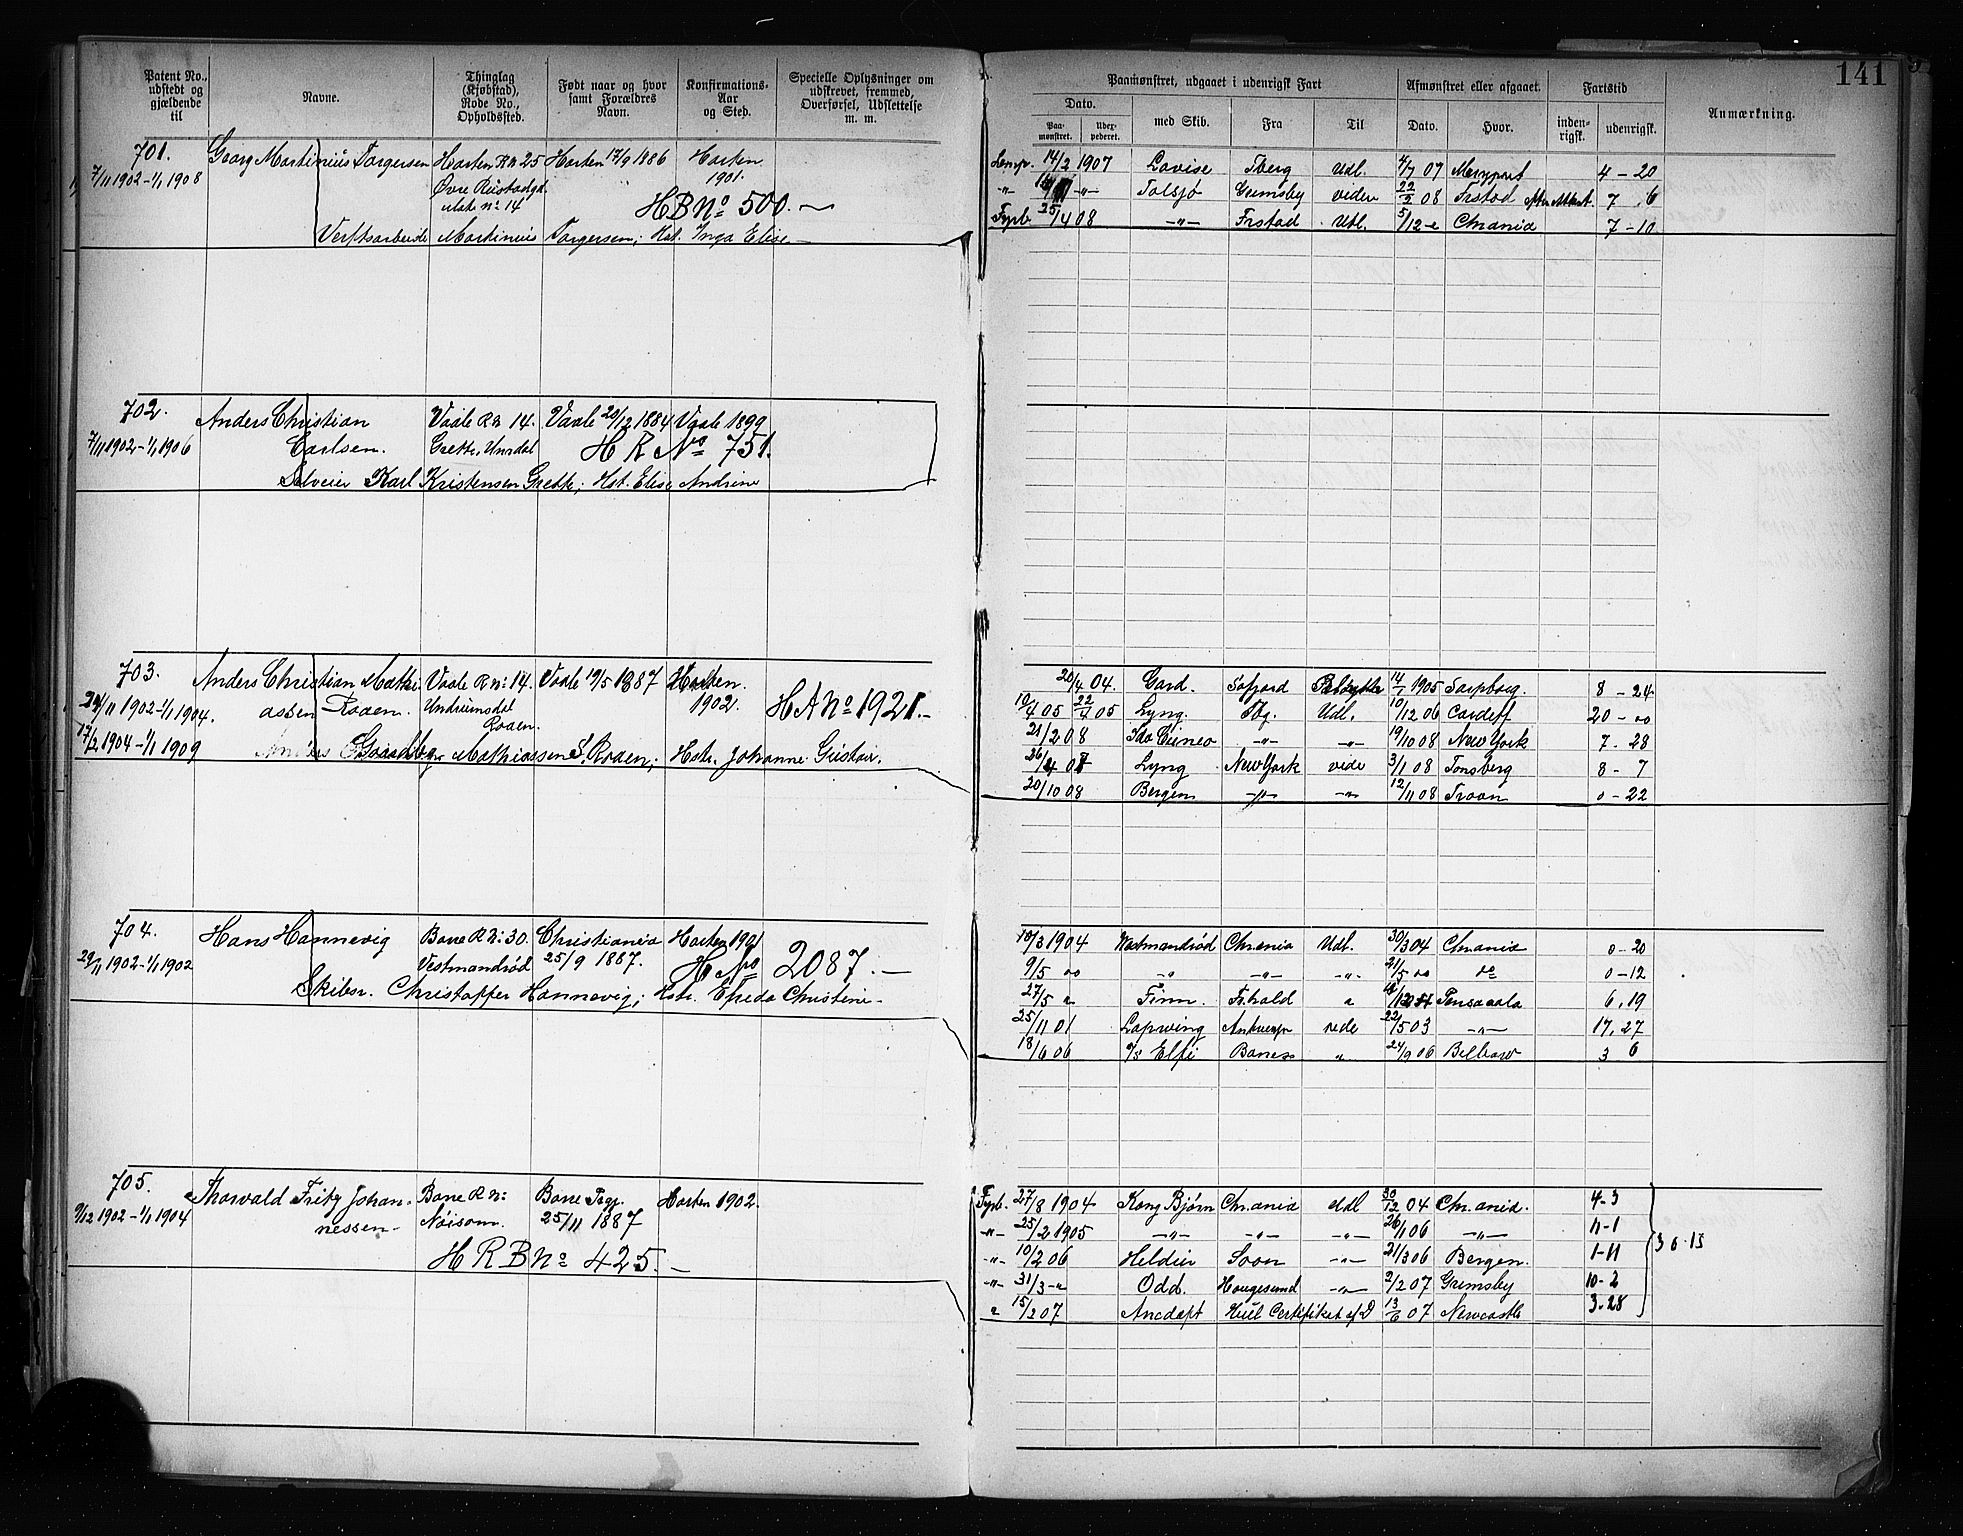 141
Patent No., udstedt og gjældende til
Navne.
Thinglag (Kjøbstad), Rode No., Opholdssted.
Født naar og hvor samt Forældres Navn.
Konfirmations-Aar og Sted.
Specielle Oplysninger om udskrevet, fremmed, Overførsel, Udslettelse m. m.
Paamønstret, udgaaet i udenrigsk Fart
Afmønstret eller afgaaet.
Fartstid
Anmærkning.
Dato.
Paa-mønstret.
Udex-pederet.
med Skib.
Fra
Til
Dato.
Hvor.
inden-rigsk.
udenrigsk.
701. Georg Martinius Torgersen Horten R No 25 Horten 17/9 1886 Horten
7/11 1902-1/1 1908 Øvre 1901.
No 14 HB No 500.
Verftsarbeide Martinius Torgersen, Hst. Inga Elise
14/2 1907 Lovise Tberg Udl. 4/7 07 Maryport 4-20
Tolsjø Grimsby videre 22/2 08 Frstad 7 6
Fyrb. 25/4 08 -"- Frstad Udl. 5/12 Chrania 7-10
702. Anders Christian Vaale R No 14. Vaale 20/12 1884 Vaale 1899
7/11 1902-1/1 1906 Carlsen. HR No 751.
Selveier Karl Kristensen Grette, Hst. Elise Andrine
703. Anders Christian Mathi- Vaale R No 14. Vaale 19/5 1887 Horten.
24/11 1902-1/1 1904. assen Roaen. Undrumsdal 1902. HA No 1921.-
Roaen.
17/2 1904-1/1 1909 Mathiassen S. Roaen, Hstr. Johanne
20/4 04. Gard. 14/1 1905 Sarpborg. 8-24
10/4 05 22/4 05 Lyng. Tbg. Udl. 10/12 06 Cardiff 20-00
21/2 08 Ida Cuneo -"- -"- 19/10 08 New York 7-28
Lyng New York vide 3/1 08 Tonsberg 8-7
20/10 08 Bergen -"- -"- 12/11 08 Troon 0-22
704. Hans Hannevig Borre R No 30. Christiania Horten 1901
29/11 1902-1/1 1902 Vestmandrød 25/9 1887. H No 2087.-
Skibsr. Christoffer Hannevig, Hstr. Christine-
18/3 1904 Vestmandrød Chrania Udl. 30/3 04 Chrania 0-20
9/5 -"- -"- -"- 21/5 do 0-12
27/5 Finn. Fshald Pensacola 6,19
25/11 01 Lapwing Antwerp rede 22/5 03 -"- 17,27
18/6 06 S/S Elfi 24/9 06 Bilbao 3 6
705. Thorvald Fritz Johan- Borre R No Borre Pgr. Horten 1902.
9/12 1902-1/1 1904 nessen- Nøisom. 25/11 1887
HRB No 425.-
Fyrb. 27/8 1904 Kong Bjørn Chrania Udl 30/12 04 Chrania. 4-3
-"- 25/2 1905 -"- -"- -"- 26/1 06 -"- 11-1
-"- 10/2 06 Soon -"- 21/3 06 Bergen. 1-11
-"- 31/3 -"- Odd. Haugesund -"- 2/2 07 Grimsby 10-2
15/2 07 Ancdapt Certifikat af D 13/6 07 Newcastle 3-28